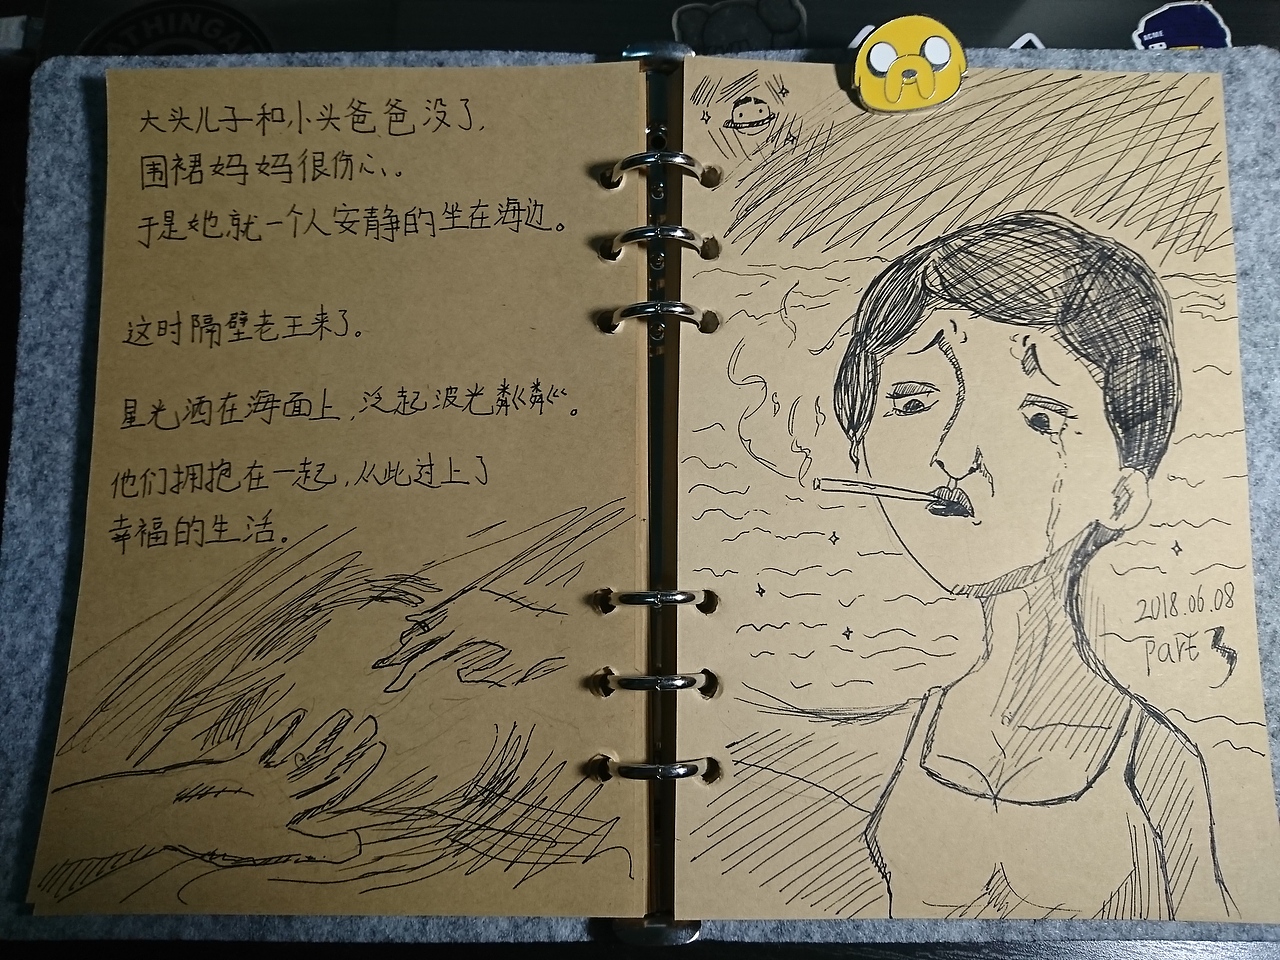 大头儿子和小头爸爸没了,
围裙妈妈很伤心、。
于是她就一个人安静的坐在海边。
这时隔壁老王来了。
星光洒在海面上,泛起波光粼粼。
他们拥抱在一起,从此过上了
幸福的生活。
2018.06.08
part 3
ACME